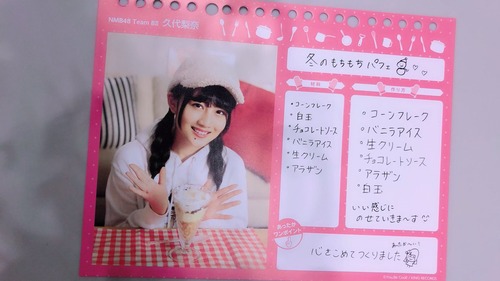 NMB48 Team BII 久代梨奈
冬のもちもちパフェ
材料
・コーンフレーク
・白玉
・チョコレートソース
・バニラアイス
・生クリーム
・アラザン
作り方
・コーンフレーク
・バニラアイス
・生クリーム
・チョコレートソース
・アラザン
・白玉
いい感じに
のせていきま〜す
あったか
ワンポイント
心をこめてつくりました